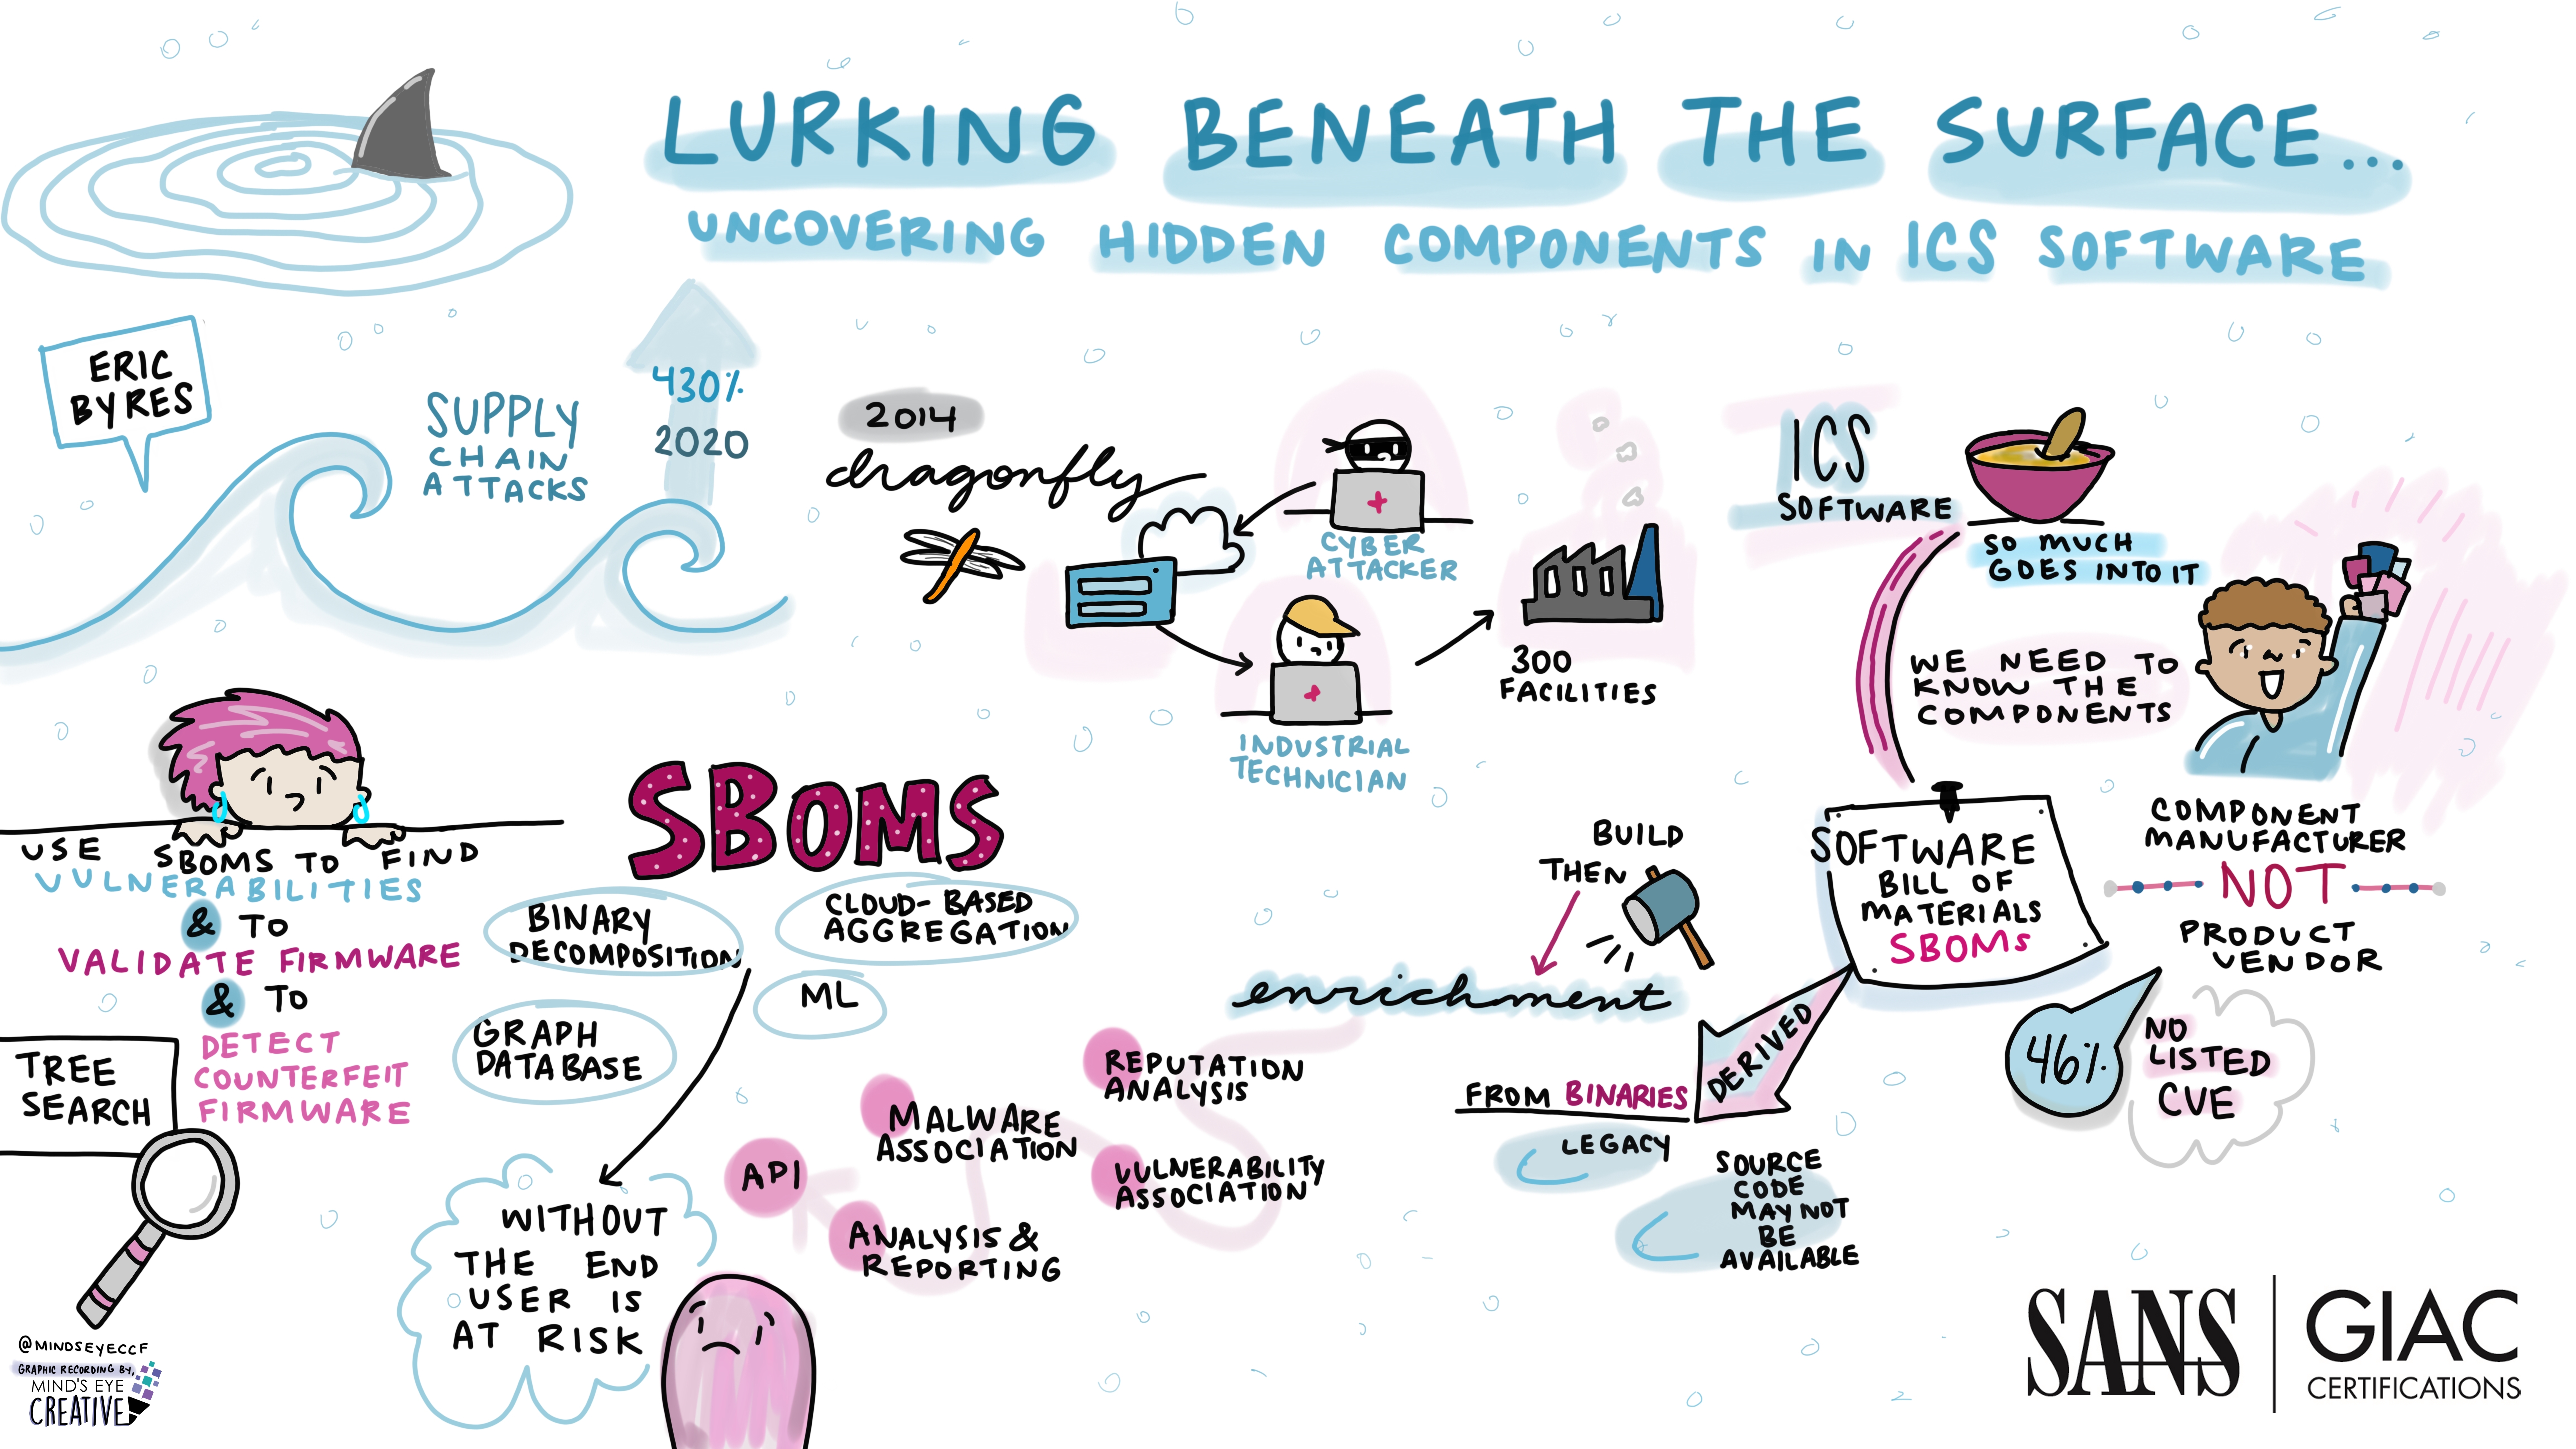 LURKING BENEATH THE SURFACE...
UNCOVERING HIDDEN COMPONENTS IN ICS SOFTWARE
ERIC
BYRES
SUPPLY
CHAIN
ATTACKS
430%
2020
2014
dragonfly
CYBER
ATTACKER
INDUSTRIAL
TECHNICIAN
300
FACILITIES
ICS
SOFTWARE
SO MUCH
GOES INTO IT
WE NEED TO
KNOW THE
COMPONENTS
SOFTWARE
BILL OF
MATERIALS
SBOMs
COMPONENT
MANUFACTURER
NOT
PRODUCT
VENDOR
46%
NO
LISTED
CVE
DERIVED
FROM BINARIES
LEGACY
SOURCE
CODE
MAY NOT
BE
AVAILABLE
BUILD
THEN
enrichment
REPUTATION
ANALYSIS
VULNERABILITY
ASSOCIATION
MALWARE
ASSOCIATION
ANALYSIS &
REPORTING
API
SBOMS
BINARY
DECOMPOSITION
CLOUD-BASED
AGGREGATION
ML
GRAPH
DATABASE
WITHOUT
THE END
USER IS
AT RISK
USE SBOMS TO FIND
VULNERABILITIES
& TO
VALIDATE FIRMWARE
& TO
DETECT
COUNTERFEIT
FIRMWARE
TREE
SEARCH
@MINDSEYECCF
GRAPHIC RECORDING BY,
MIND'S EYE
CREATIVE
SANS
GIAC
CERTIFICATIONS